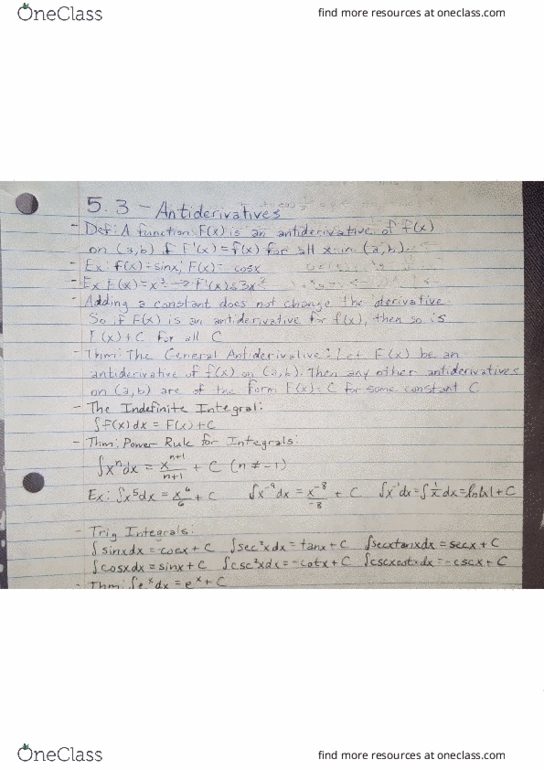 OneClass
find more resources at oneclass.com
5.3 - Antiderivatives
- Def: A function F(x) is an antiderivative of f(x)
on (a,b) if F'(x)=f(x) for all x in (a,b).
- Ex: f(x)=sinx, F(x)=-cosx
- Ex F(x)=x³ → F'(x)=3x²
- Adding a constant does not change the derivative.
So if F(x) is an antiderivative for f(x), then so is
F(x)+C for all C
- Thm: The General Antiderivative: Let F(x) be an
antiderivative of f(x) on (a,b). Then any other antiderivatives
on (a,b) are of the form F(x)+C for some constant C.
- The Indefinite Integral:
∫f(x)dx = F(x)+C
- Thm: Power Rule for Integrals:
∫xⁿdx = xⁿ⁺¹/n+1 + C (n≠-1)
Ex: ∫x⁵dx = x⁶/6 + C ∫x⁻⁹dx = x⁻⁸/-8 + C ∫x⁻¹dx = ∫1/x dx = ln|x| + C
- Trig Integrals:
∫sinxdx = -cosx + C ∫sec²xdx = tanx + C ∫secxtanxdx = secx + C
∫cosxdx = sinx + C ∫csc²xdx = -cotx + C ∫cscxcotxdx = -cscx + C
- Thm: ∫eˣdx = eˣ + C
OneClass
find more resources at oneclass.com